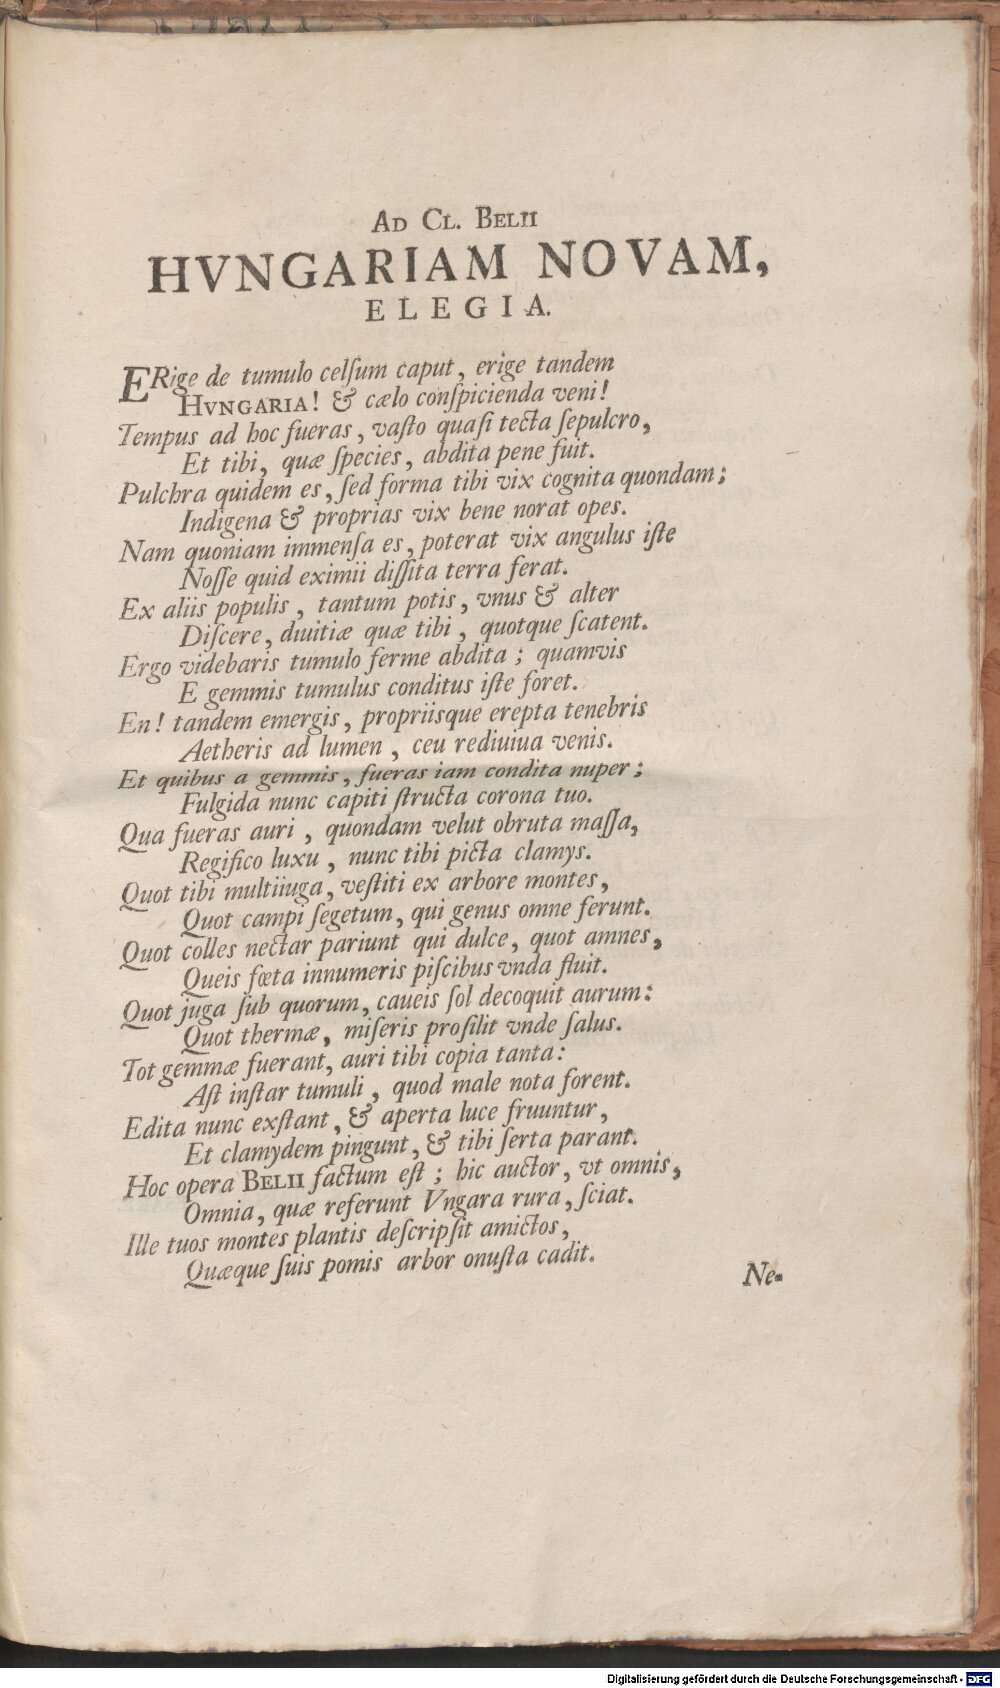 AD CL. BELII
HVNGARIAM NOVAM,
ELEGIA.
ERige de tumulo celſum caput, erige tandem
HVNGARIA! & cælo conſpicienda veni!
Tempus ad hoc fueras, vaſto quaſi tecta ſepulcro,
Et tibi, quæ ſpecies, abdita pene fuit.
Pulchra quidem es, ſed forma tibi vix cognita quondam;
Indigena & proprias vix bene norat opes.
Nam quoniam immenſa es, poterat vix angulus iſte
Noſſe quid eximii diſſita terra ferat.
Ex aliis populis, tantum potis, vnus & alter
Diſcere, diuitiæ quæ tibi, quotque ſcatent.
Ergo videbaris tumulo ferme abdita; quamvis
E gemmis tumulus conditus iſte foret.
En! tandem emergis, propriisque erepta tenebris
Aetheris ad lumen, ceu rediuiua venis.
Et quibus a gemmis, fueras iam condita nuper;
Fulgida nunc capiti ſtructa corona tuo.
Qua fueras auri, quondam velut obruta maſſa,
Regifico luxu, nunc tibi picta clamys.
Quot tibi multiiuga, veſtiti ex arbore montes,
Quot campi ſegetum, qui genus omne ferunt.
Quot colles nectar pariunt qui dulce, quot amnes,
Queis fœta innumeris piſcibus vnda fluit.
Quot juga ſub quorum, caueis ſol decoquit aurum:
Quot thermæ, miſeris proſilit vnde ſalus.
Tot gemmæ fuerant, auri tibi copia tanta:
Aſt inſtar tumuli, quod male nota forent.
Edita nunc exſtant, & aperta luce fruuntur,
Et clamydem pingunt, & tibi ſerta parant.
Hoc opera BELII factum eſt; hic auctor, vt omnis,
Omnia, quæ referunt Vngara rura, ſciat.
Ille tuos montes plantis deſcripſit amictos,
Quæque ſuis pomis arbor onuſta cadit.
Ne-
Digitalisierung gefördert durch die Deutsche Forschungsgemeinschaft - DFG